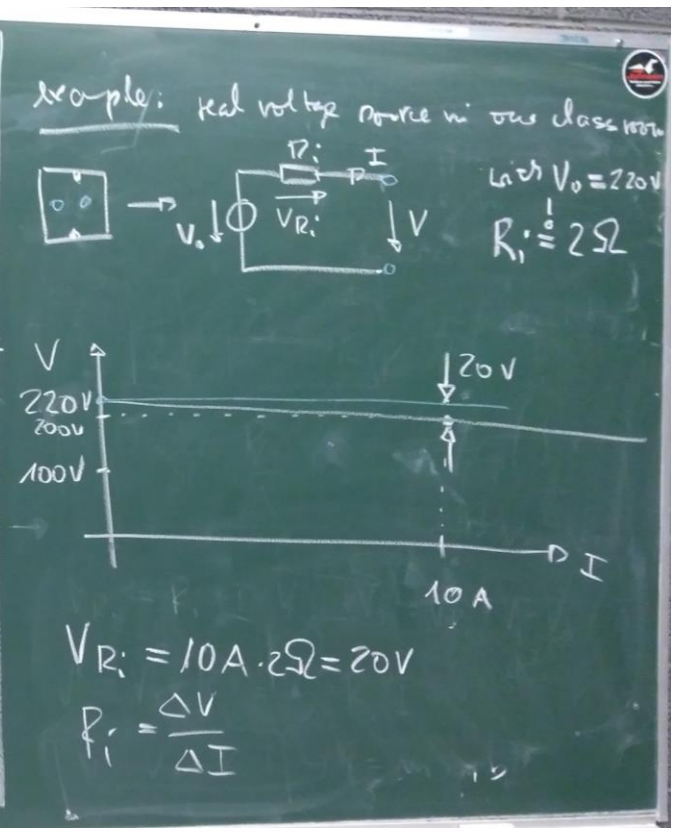 example: real voltage source in our class room
with V₀ = 220V
Rᵢ I
V₀ V_Rᵢ V Rᵢ = 2Ω
V
20V
220V
200V
100V
I
10A
V_Rᵢ = 10A·2Ω = 20V
Rᵢ = ΔV/ΔI